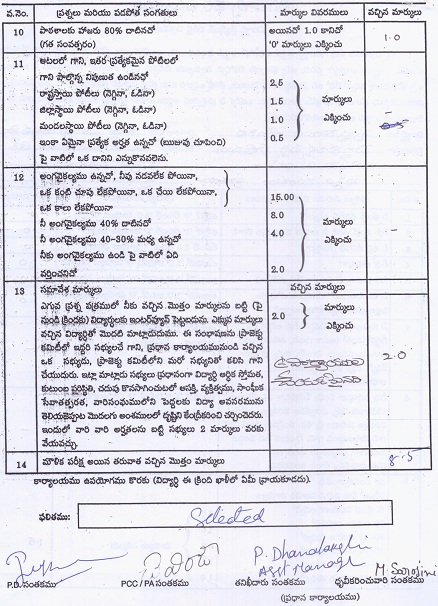 వ.నెం. ప్రశ్నలు మరియు పడపోత సంగతులు మార్కుల వివరములు వచ్చిన మార్కులు
10 పాఠశాలకు హాజరు 80% దాటినదో అయినచో 1.0 కానిచో 1.0
(గత సంవత్సరం) '0' మార్కులు ఎక్కించు
11 ఆటలలో గాని, ఇతర ప్రత్యేకమైన పోటిలలో
గాని పాల్గొన్న నిపుణుత ఉండినచో 2.5
రాష్ట్రస్థాయి పోటీలు (నెగ్గినా, ఓడినా) 1.5 మార్కులు
జిల్లాస్థాయి పోటీలు (నెగ్గినా, ఓడినా) 1.0 ఎక్కించు
మండలస్థాయి పోటీలు (నెగ్గినా, ఓడినా) 0.5
ఇంకా ఏమైనా ప్రత్యేక అర్హత ఉన్నచో (ఋజువు చూపించి)
పై వాటిలో ఒక దానిని ఎన్నుకొనవలెను.
12 అంగవైకల్యము ఉన్నదో, నీవు నడవలేక పోయినా,
ఒక కంటి చూపు లేకపోయినా, ఒక చేయి లేకపోయినా, 16.00
ఒక కాలు లేకపోయినా 8.0 మార్కులు
నీ అంగవైకల్యము 40% దాటినచో 4.0 ఎక్కించు
నీ అంగవైకల్యము 40-30% మధ్య ఉన్నచో
నీకు అంగవైకల్యము ఉండి పై వాటిలో ఏది 2.0
వర్తించనిచో
13 సమావేశ మార్కులు వచ్చిన మార్కులు
ఎగువ ప్రశ్న పత్రములో నీకు వచ్చిన మొత్తం మార్కులను బట్టి (పై 2.0 మార్కులు
నుండి క్రిందకు) విద్యార్థులకు ఇంటర్‌వ్యూన్ పెట్టబడును. ఎక్కువ మార్కులు ఎక్కించు
వచ్చిన విద్యార్థితో మొదటి మాట్లాడుదుము. ఈ సంభాషణను ప్రాజెక్టు
కమిటీలో ఇద్దరి సభ్యులచే గాని, ప్రధాన కార్యాలయమునుండి వచ్చిన
ఒక సభ్యుడు, ప్రాజెక్టు కమిటీలోని మరో సభ్యునితో కలిసి గాని 2.0
చేయుదురు. ఇట్లా మాట్లాడు సభ్యులు ప్రధానంగా విద్యార్థి ఆర్థిక స్తోమత,
కుటుంబ పరిస్థితి, చదువు కొనసాగించుటలో ఆసక్తి, వ్యక్తిత్వము, సాంఘిక
సేవాతత్పరత, వారిసంఘములోని పెద్దలకు విద్యా అవసరమును
తెలియజెప్పుట మొదలగు అంశములలో దృష్టిని కేంద్రీకరించి చర్చించెదరు.
ఇందులో వారి వారి అర్హతలను బట్టి సభ్యులు 2 మార్కులు వరకు
వేయవచ్చు.
14 మౌళిక పరీక్ష అయిన తరువాత వచ్చిన మొత్తం మార్కులు 8.5
కార్యాలయము ఉపయోగము కొరకు (విద్యార్థి ఈ క్రింది ఖాళీలో ఏమీ వ్రాయకూడదు).
ఫలితము: Selected
P. Dhanalakshmi
Asst Manager M. Sarojini
P.D. సంతకము PCC / PA సంతకము తనిఖీదారు సంతకము ధృవీకరించువారి సంతకము
(ప్రధాన కార్యాలయము)